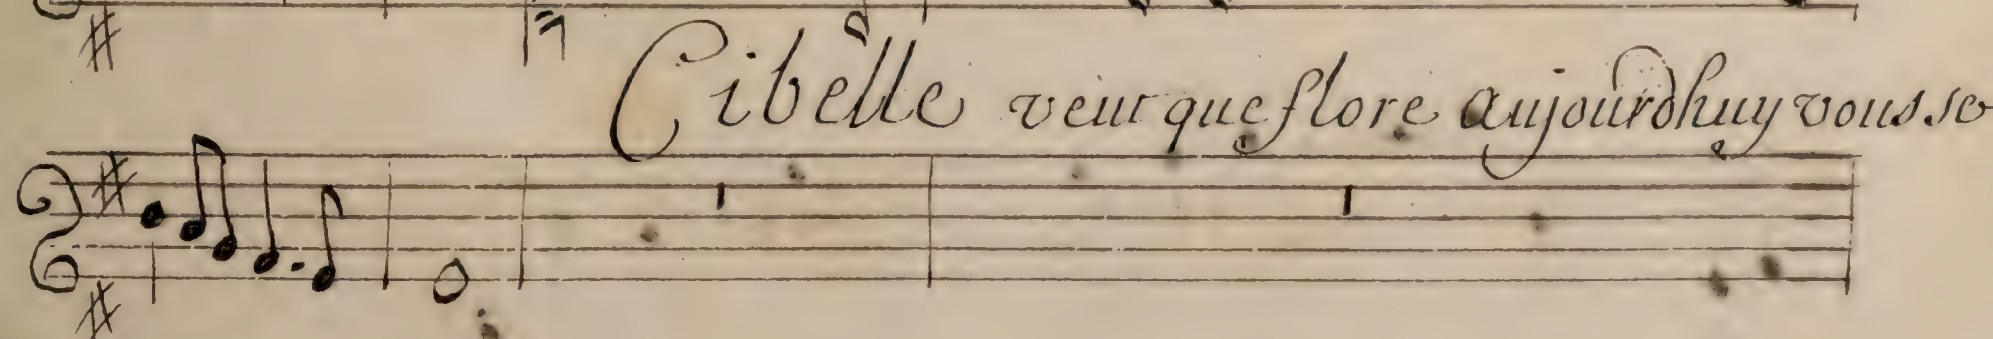 Cibelle veut que flore aujourdhuy vous se